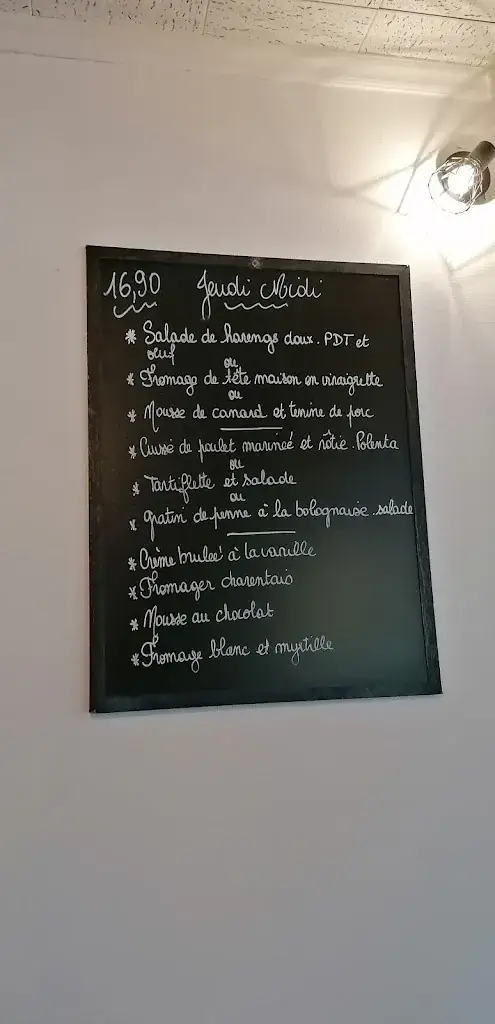 16,90 Jeudi Midi
* Salade de harengs doux. PDT et
oeuf
ou
* Fromage de tête maison en vinaigrette
ou
* Mousse de canard et terrine de porc
* Cuisse de poulet marineé et rôtie. Polenta
ou
* Tartiflette et salade
ou
* gratin de penne à la bolognaise. salade
* Crème brulee' à la vanille
* Fromager charentais
* Mousse au chocolat
* Fromage blanc et myrtille